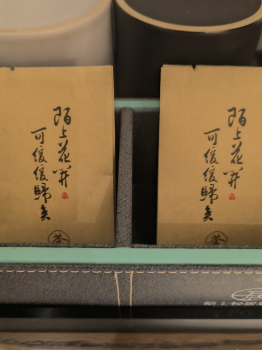 陌上花开
可缓缓归矣
茶
陌上花开
可缓缓归矣
茶